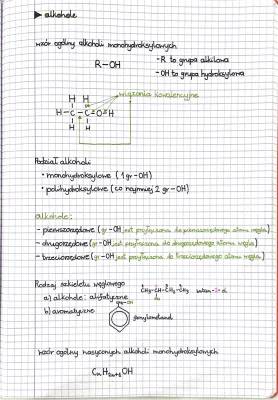 ▶ alkohole
wzór ogólny alkoholi monohydroksylowych
R-OH
-R to grupa alkilowa
-OH to grupa hydroksylowa
wiązania kowalencyjne
H H
H-C-C-O-H
H H
Podział alkoholi
• monohydroksylowe (1 gr-OH)
• polihydroksylowe (co najmniej 2 gr-OH)
alkohole:
- pierwszorzędowe (gr-OH jest przyłączona do pierwszorzędowego atomu węgla)
- drugorzędowe (gr-OH jest przyłączona do drugorzędowego atomu węgla)
- trzeciorzędowe (gr-OH jest przyłączona do trzeciorzędowego atomu węgla)
Rodzaj szkieletu węglowego
a) alkohole: alifatyczne
b) aromatyczne
fenylometanol
wzór ogólny nasyconych alkoholi monohydroksylowych
CnH2n+1OH